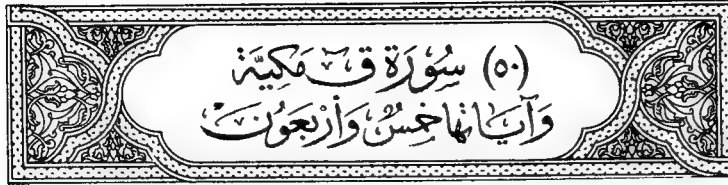 (٥٠) سُوْرَة قٓ مَكِيَّة
وَآيَاتهَا خَمِسٌ وَأَرْبَعُونَ